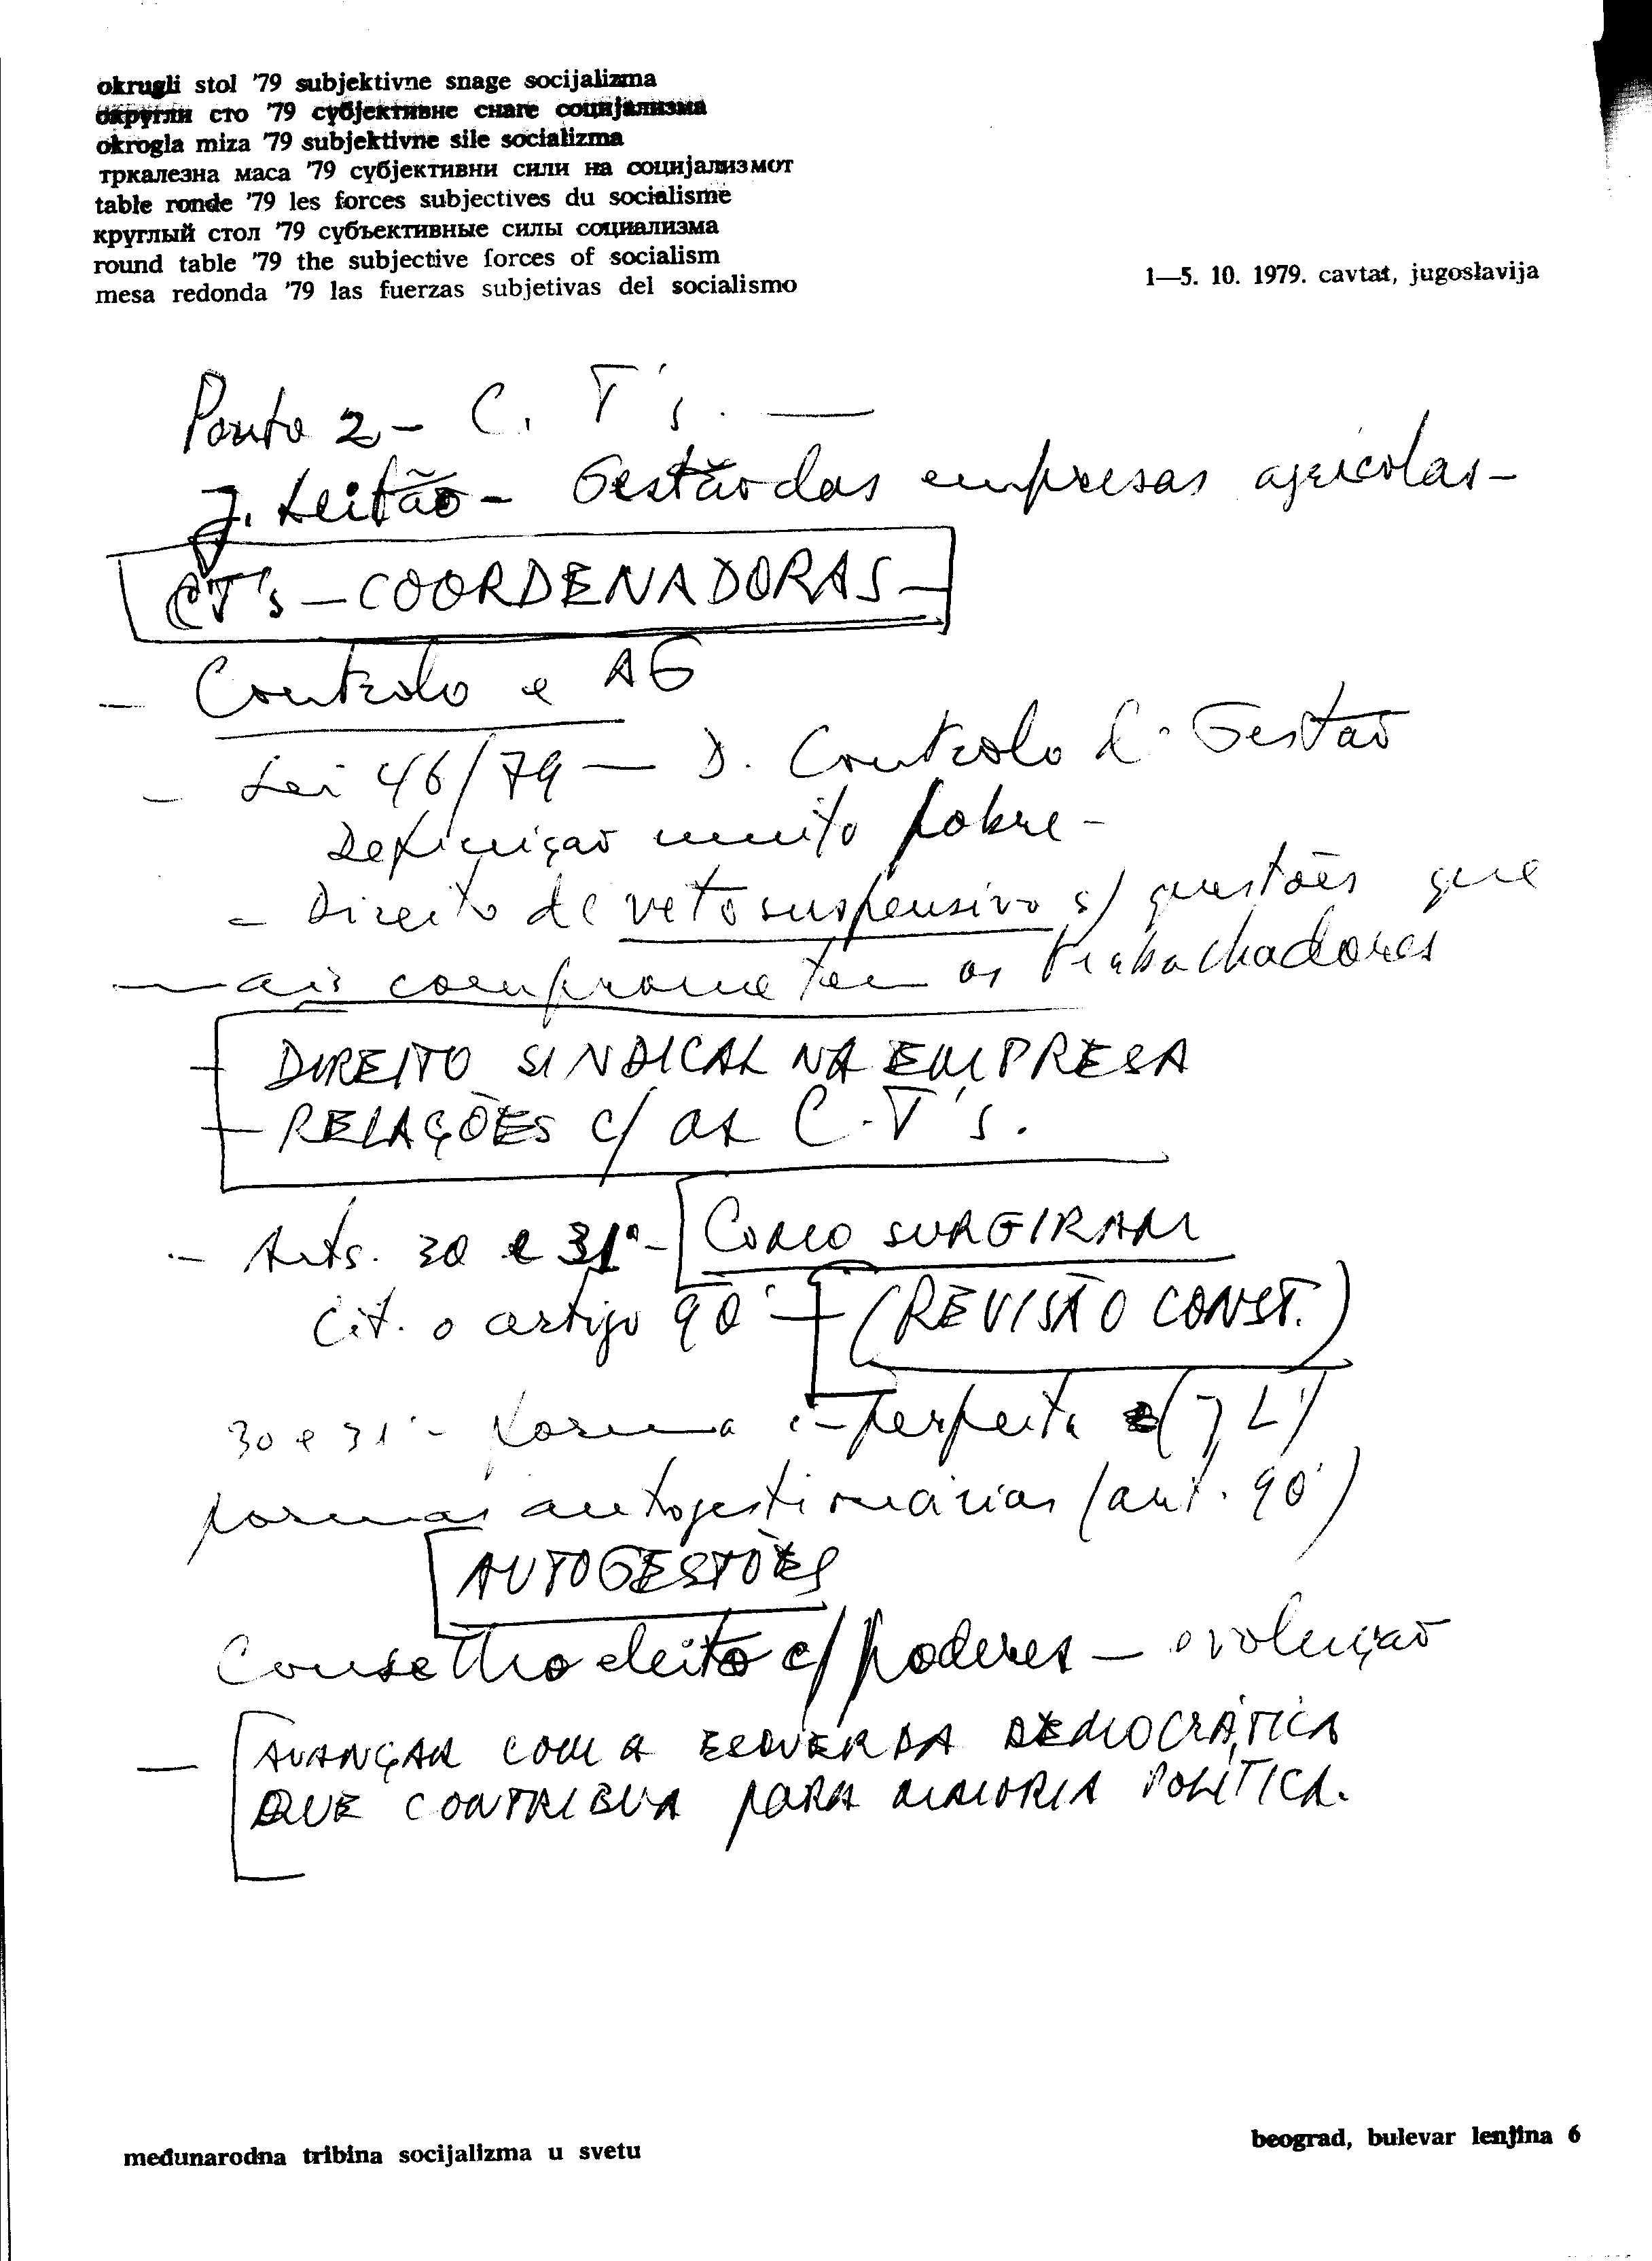 okrugli stol '79 subjektivne snage socijalizma
округли сто '79 субјективне снаге социјализма
okrogla miza '79 subjektivne sile socializma
тркалезна маса '79 субјективни сили на социјализмот
table ronde '79 les forces subjectives du socialisme
круглый стол '79 субъективные силы социализма
round table '79 the subjective forces of socialism
mesa redonda '79 las fuerzas subjetivas del socialismo
1—5. 10. 1979. cavtat, jugoslavija
Ponto 2 - C. T's. —
J. Leitão - Gestão das empresas agrícolas -
CT's - COORDENADORAS -
- Controlo e AG
- Lei 46/79 — D. Controlo de Gestão
Definição muito pobre -
- Direito de veto suspensivo s/ questões que
mais comprometem os trabalhadores
- DIREITO SINDICAL NA EMPRESA
- RELAÇÕES c/ as C.T's.
- Arts. 30 e 31º - COMO SURGIRAM
Cit. o artigo 90º - (REVISÃO CONST.)
30 e 31º - Forma imperfeita (J L)
formas autogestionárias (art. 90º)
AUTOGESTÕES
Conselho eleito c/ poderes — evolução
— AVANÇAR COM A ESQUERDA DEMOCRÁTICA
QUE CONTRIBUA PARA MAIORIA POLÍTICA.
međunarodna tribina socijalizma u svetu
beograd, bulevar lenjina 6